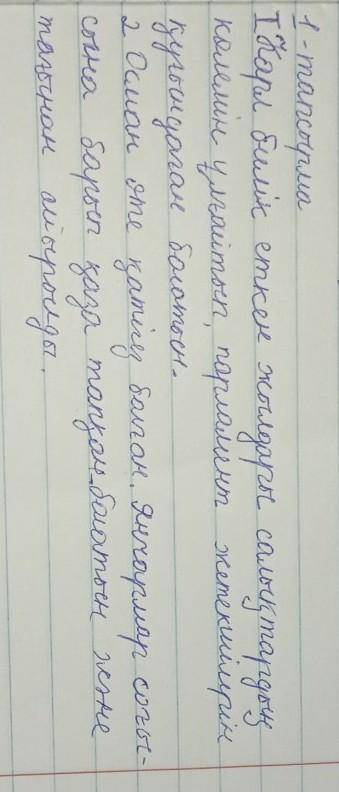 1-тапсырма
I Карл билік еткен жылдары салықтардың
көлемін ұлғайтып, парламент жетекшілерін
қуғындаған болатын.
2 Осман өте қатігез болған. Янычарлар соғы-
сына барып қаза тапқан болатын және
тағынан айырылды.